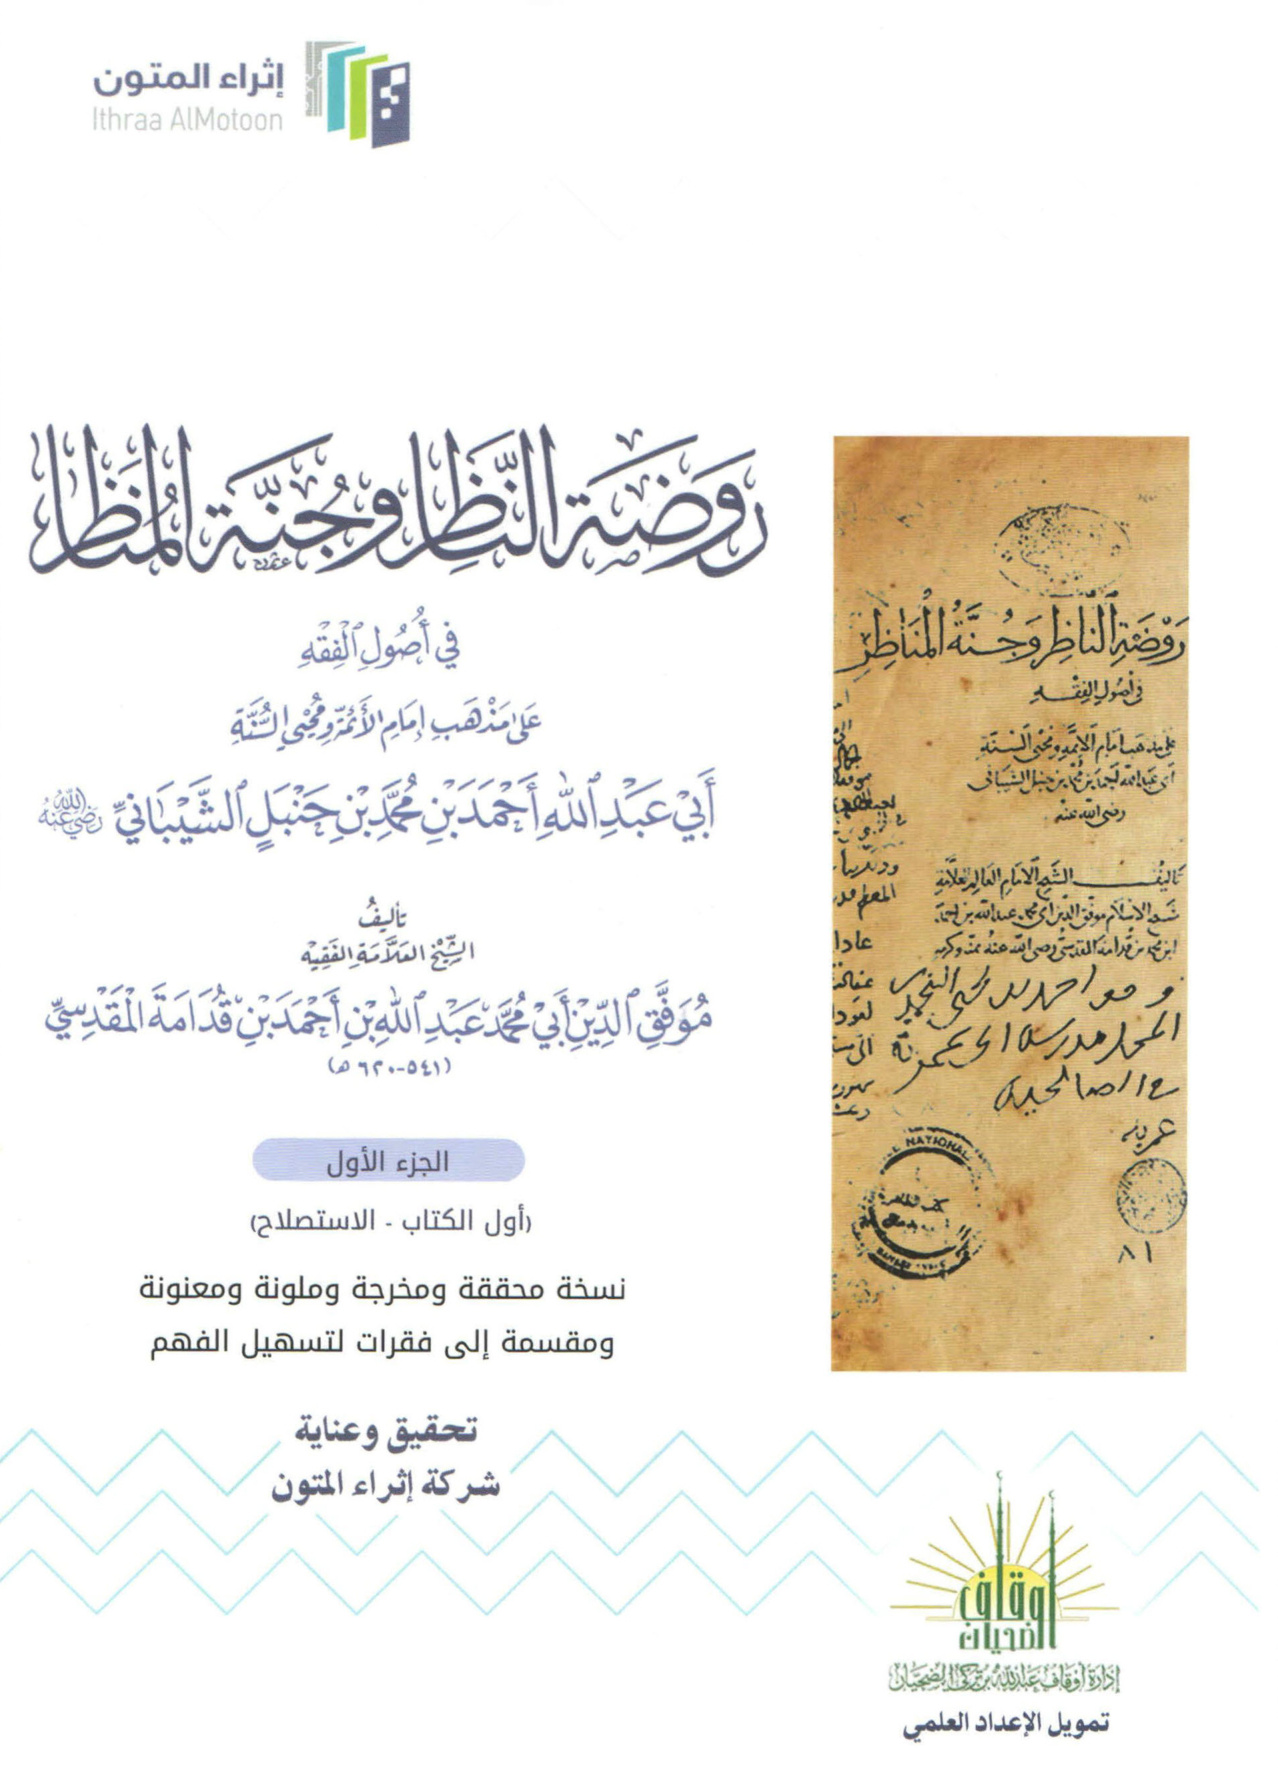 إثراء المتون
Ithraa AlMotoon
روضة الناظر وجنة المناظر
في أصول الفقه
على مذهب إمام الأئمة ومحيي السنة
أبي عبد الله أحمد بن محمد بن حنبل الشيباني رضي الله عنه
تأليف
الشيخ العلامة الفقيه
موفق الدين أبي محمد عبد الله بن أحمد بن قدامة المقدسي
(٥٤١-٦٢٠ هـ)
الجزء الأول
(أول الكتاب - الاستصلاح)
نسخة محققة ومخرجة وملونة ومعنونة
ومقسمة إلى فقرات لتسهيل الفهم
تحقيق وعناية
شركة إثراء المتون
روضة الناظر وجنة المناظر
في أصول الفقه
على مذهب إمام الأئمة ومحيي السنة
أبي عبد الله أحمد بن محمد بن حنبل الشيباني
رضي الله عنه
تأليف الشيخ الإمام العالم العلامة
شيخ الإسلام موفق الدين أبي محمد عبد الله بن أحمد
ابن محمد بن قدامة المقدسي رضي الله عنه
NATIONAL
٨١
أوقاف
الضحيان
إدارة أوقاف عبدالله بن تركي الضحيان
تمويل الإعداد العلمي